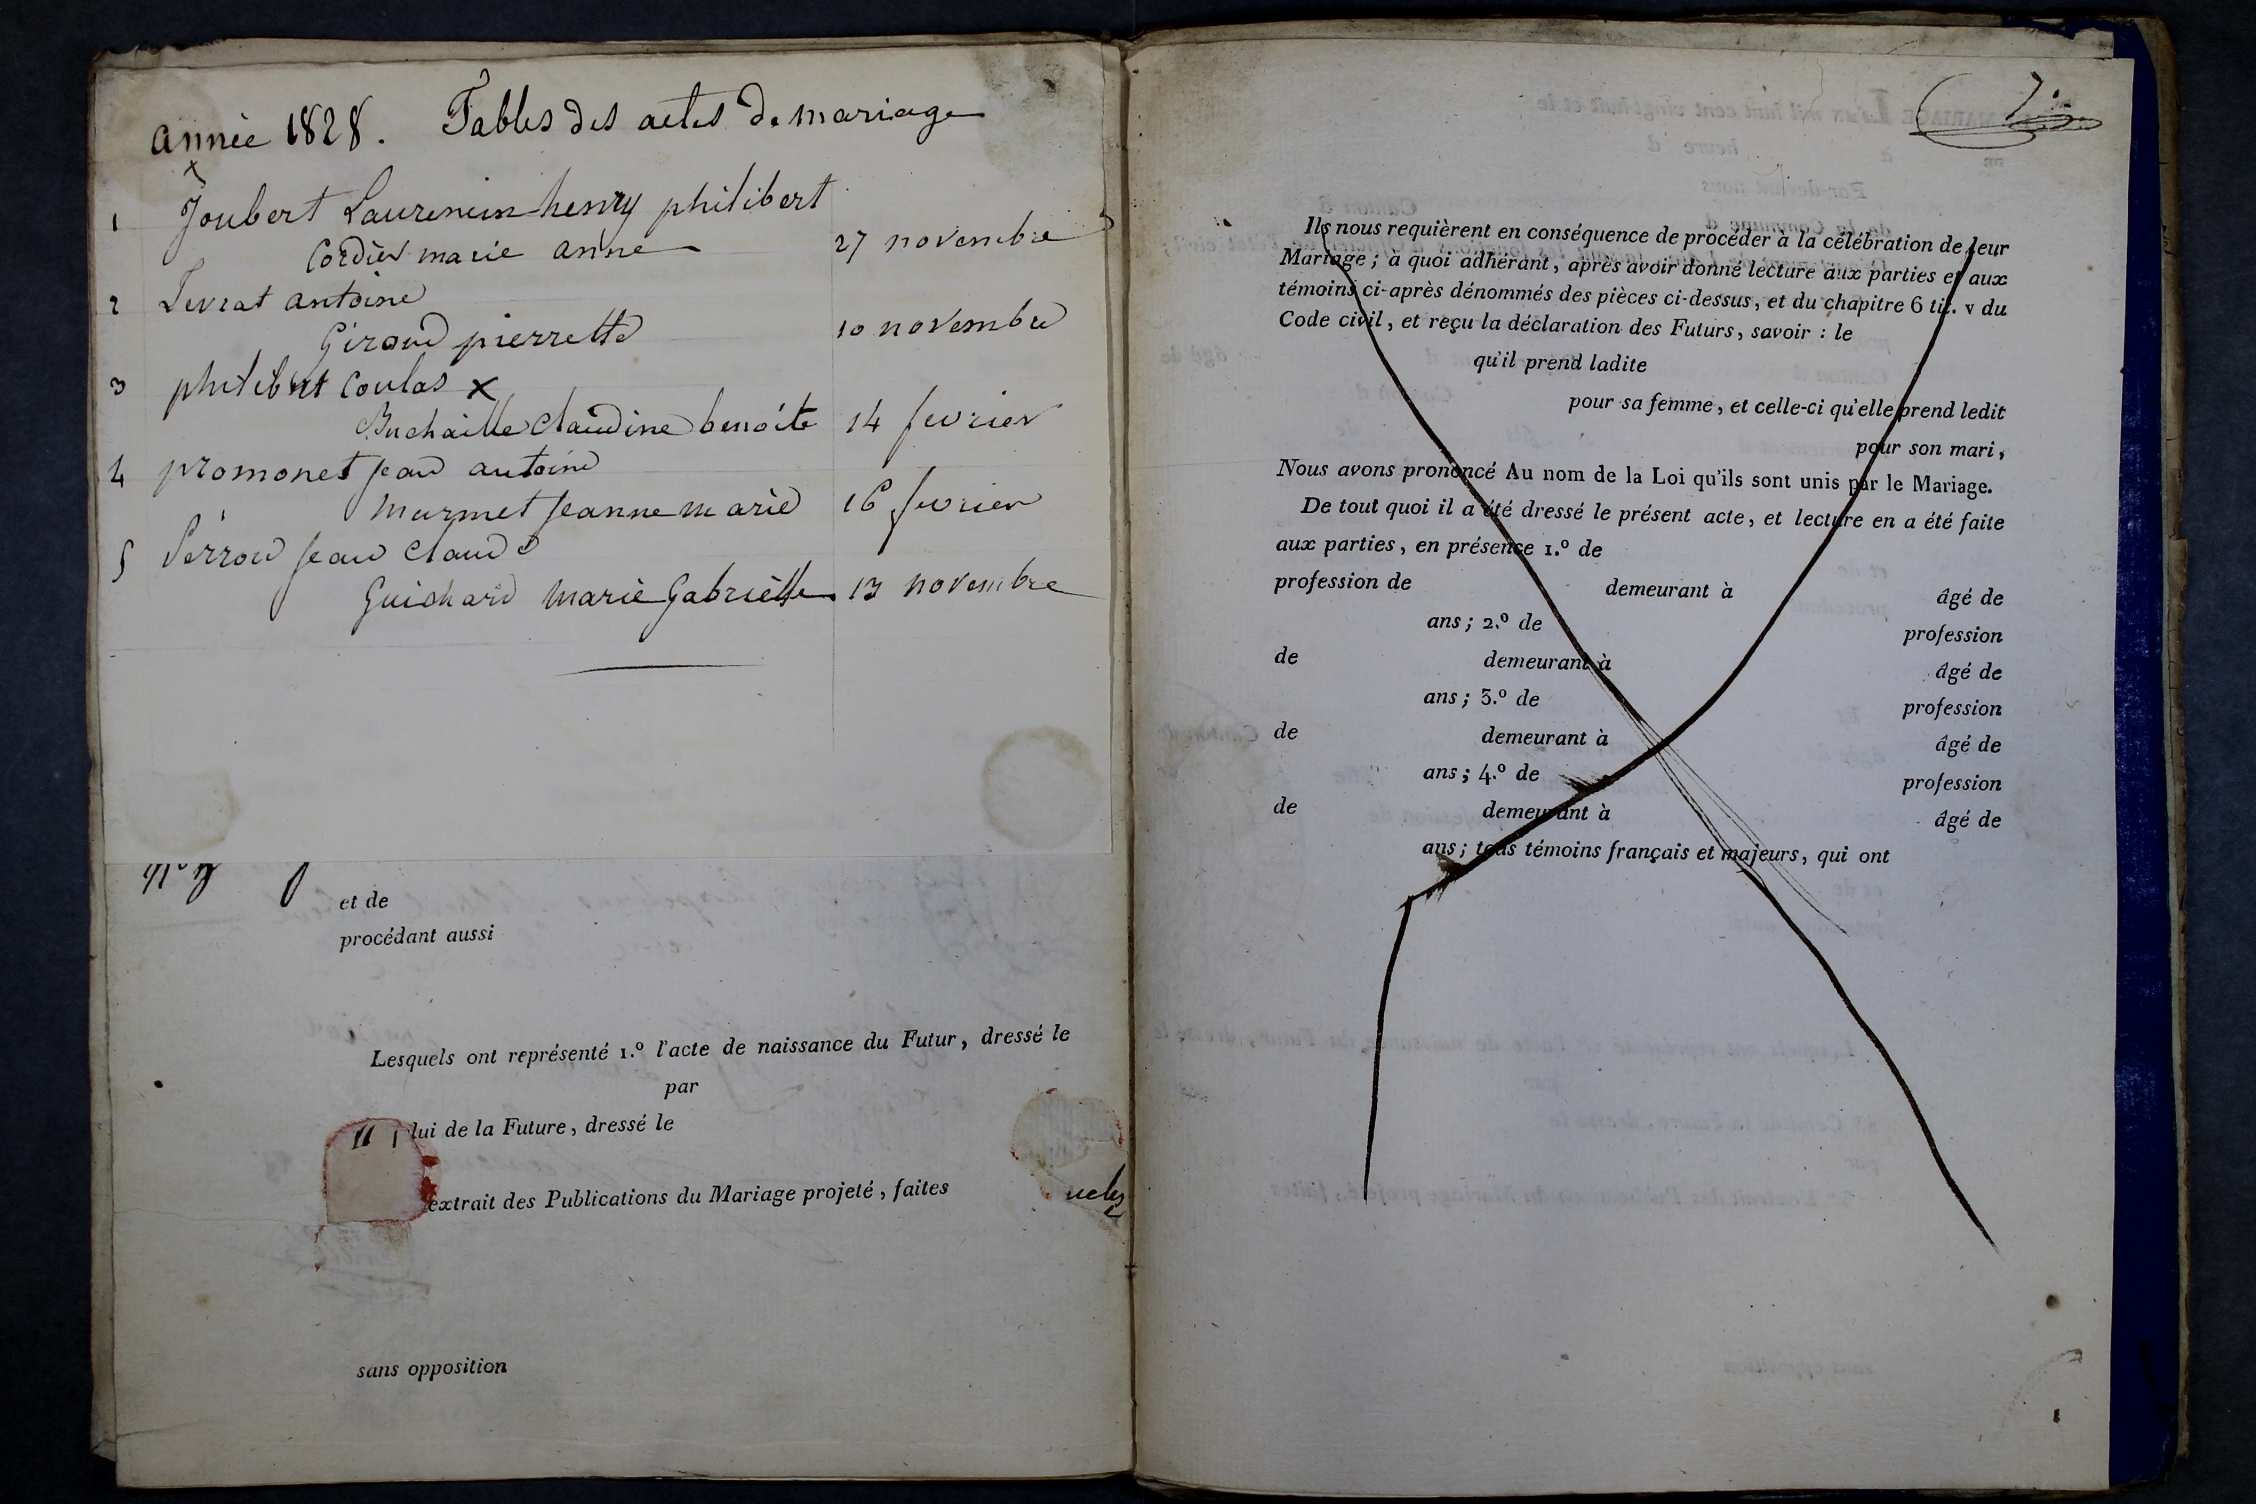 année 1828. Tables des actes de mariage
x
1 Joubert Laurencin henry philibert
Cordier marie anne 27 novembre
2 Levrat antoine
Giraud pierrette 10 novembre
3 philibert Coulas x
Buchaille Claudine benoite 14 fevrier
4 promonet jean antoine
murmet jeanne marie 16 fevrier
5 Perrou jean Claude
Guichard marie Gabrielle 13 novembre
et de
procédant aussi
Lesquels ont représenté 1.º l'acte de naissance du Futur, dressé le
par
lui de la Future, dressé le
extrait des Publications du Mariage projeté, faites
sans opposition
7
Ils nous requièrent en conséquence de procéder à la célébration de leur
Mariage; à quoi adhérant, après avoir donné lecture aux parties et aux
témoins ci-après dénommés des pièces ci-dessus, et du chapitre 6 tit. v du
Code civil, et reçu la déclaration des Futurs, savoir : le
qu'il prend ladite
pour sa femme, et celle-ci qu'elle prend ledit
pour son mari,
Nous avons prononcé Au nom de la Loi qu'ils sont unis par le Mariage.
De tout quoi il a été dressé le présent acte, et lecture en a été faite
aux parties, en présence 1.º de
profession de demeurant à âgé de
ans; 2.º de profession
de demeurant à âgé de
ans; 3.º de profession
de demeurant à âgé de
ans; 4.º de profession
de demeurant à âgé de
ans; tous témoins français et majeurs, qui ont